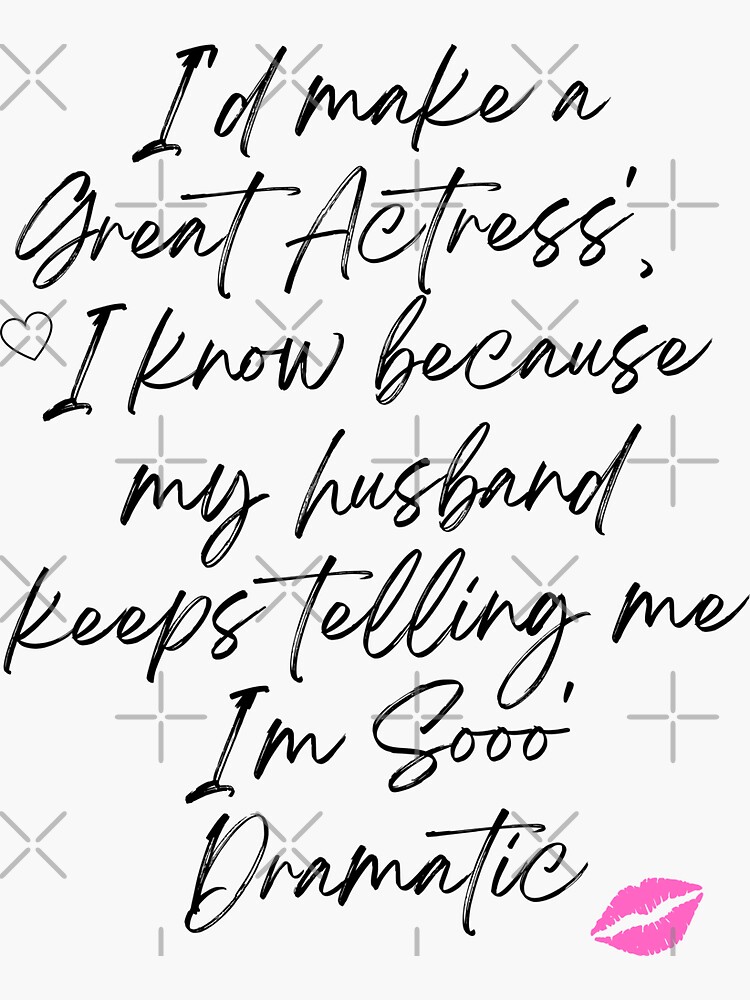 I'd make a
Great Actress',
I know because
my husband
keeps telling me
Im Sooo'
Dramatic